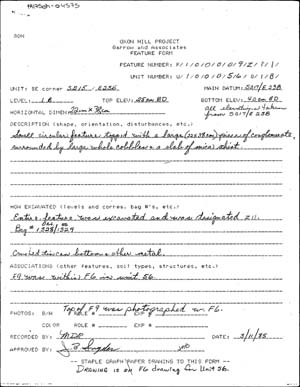 SON
OXON HILL PROJECT
Garrow and Associates
FEATURE FORM
FEATURE NUMBER: F/1/0/0/0/9/Z/1/1/
UNIT NUMBER: U/1/0/0/0/5/6/0/1/B/
UNIT: SE corner S215 E256
DATE: 5/17
LEVEL: 1B TOP ELEV: 25cm BD BOTTOM ELEV: 42cm BD
HORIZONTAL DIMEN: 22cm x 38cm all elevations taken
from S217/E238
DESCRIPTION (shape, orientation, disturbances, etc.)
Small circular feature topped with a large (22x38cm) piece of conglomerate,
surrounded by large whole cobbles & a slab of mica shist.
HOW EXCAVATED (levels and corres. bag #'s, etc.)
Entire feature was excavated and was designated Z11.
Bag # 1328/1329
Crushed tin can bottom & other metal.
ASSOCIATIONS (other features, soil types, structures, etc.)
F9 was within F6 in unit 56.
Top of F9 was photographed w. F6.
PHOTOS: B/W ROLE # EXP #
COLOR ROLE # EXP #
RECORDED BY: MDP DATE: 5/11/85
APPROVED BY: J.B. Snyder
-- STAPLE GRAPH PAPER DRAWING TO THIS FORM --
DRAWING is on F6 drawing for Unit 56.